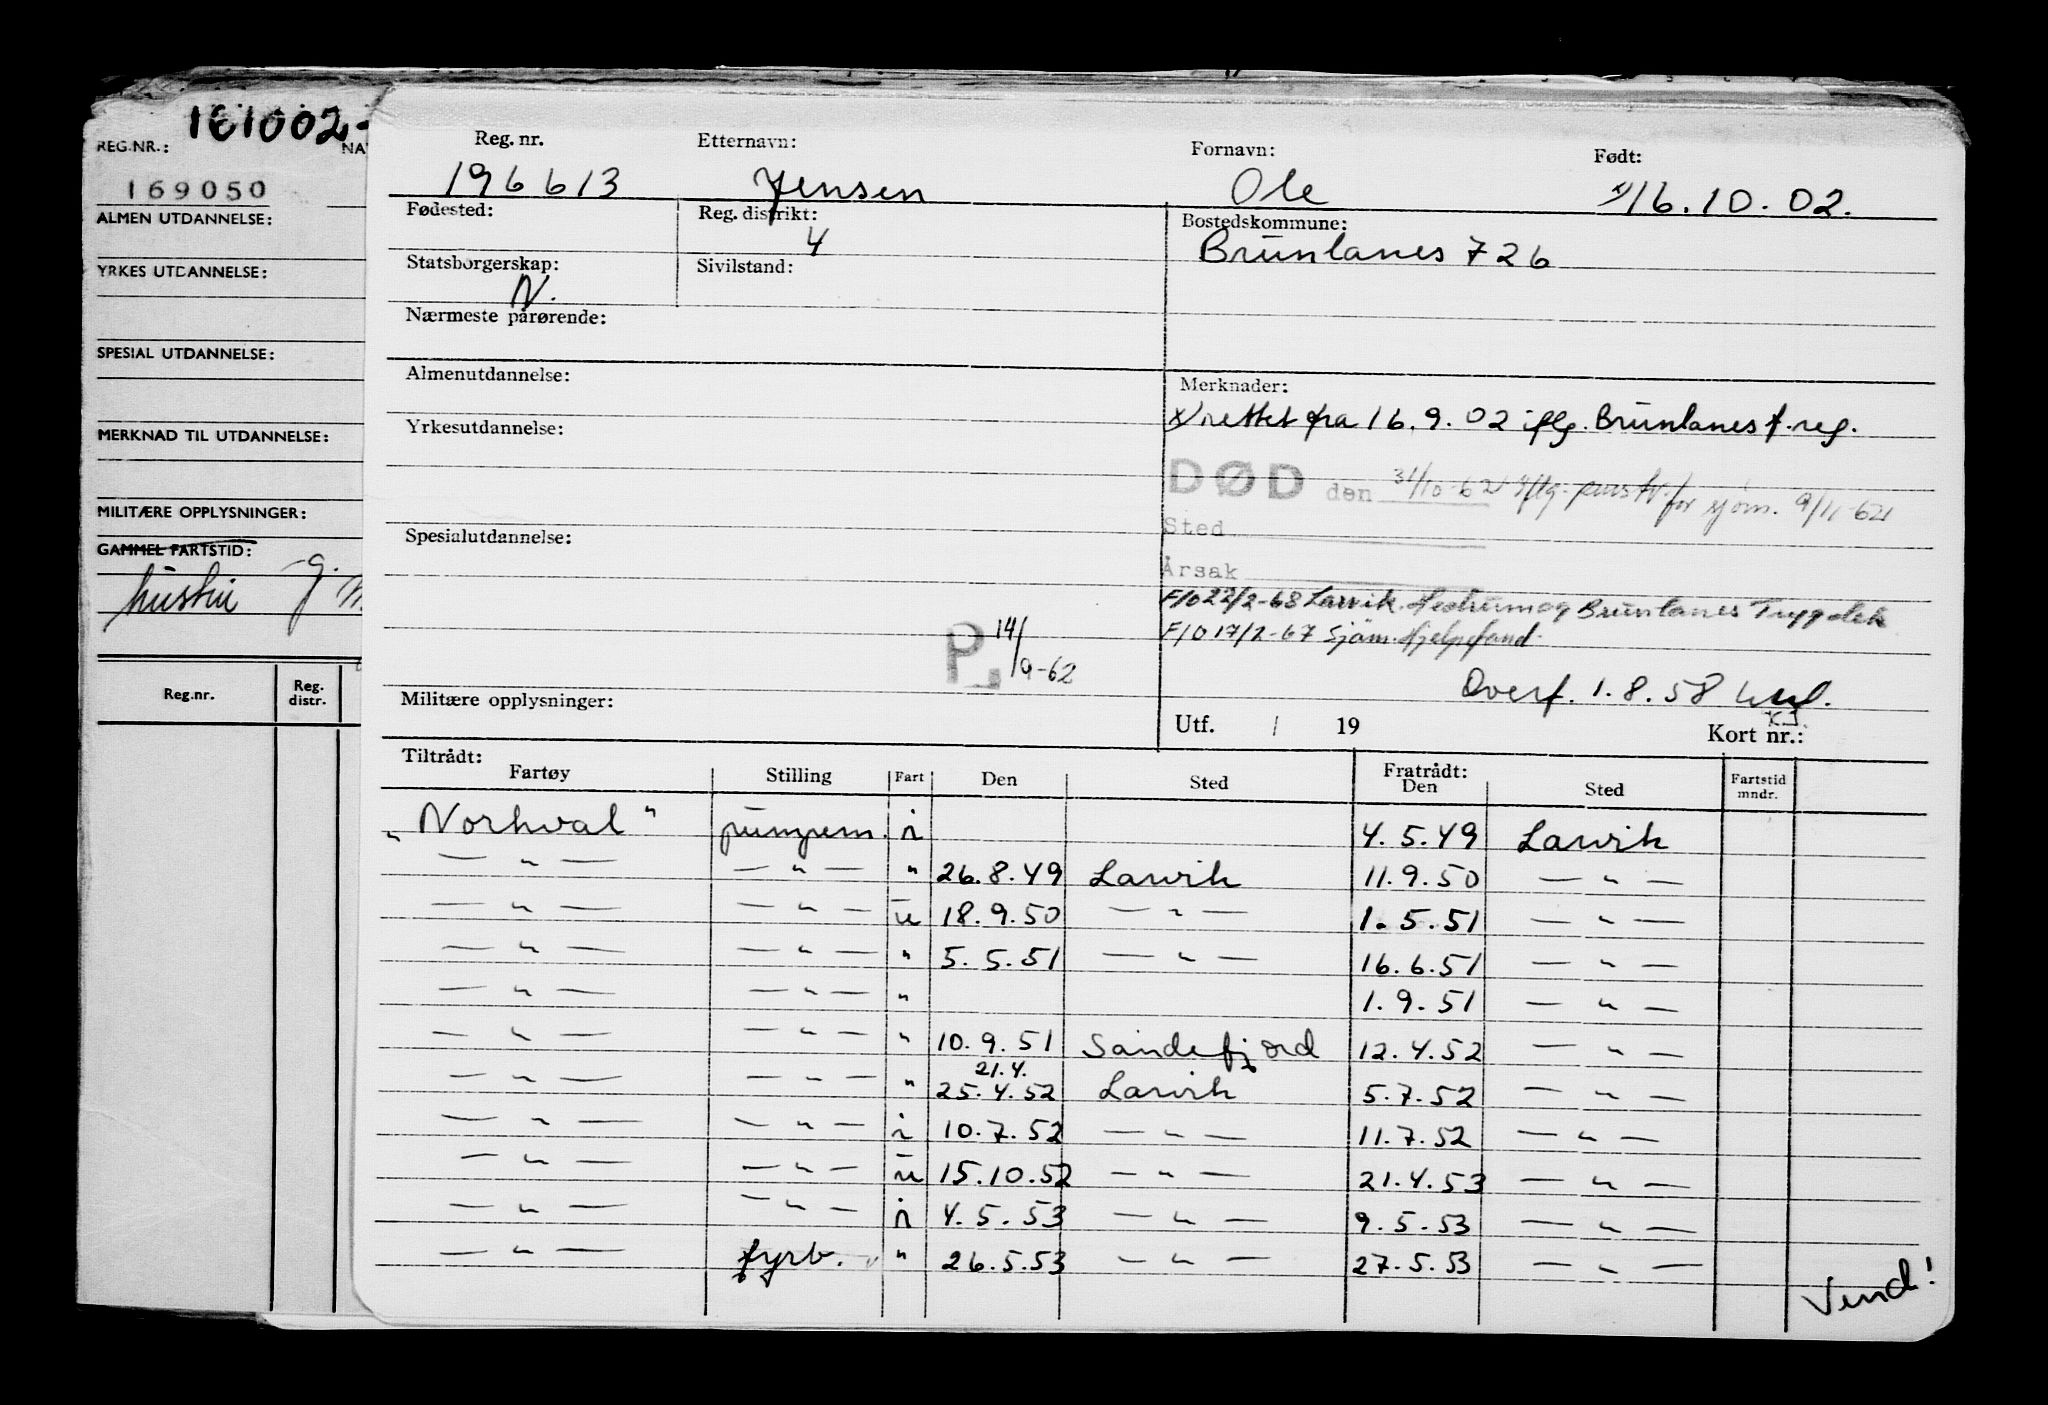 161002-
REG.NR.: NA
169050
ALMEN UTDANNELSE:
YRKES UTDANNELSE:
SPESIAL UTDANNELSE:
MERKNAD TIL UTDANNELSE:
MILITÆRE OPPLYSNINGER:
GAMMEL FARTSTID:
Reg.nr. Reg. distr.
Reg. nr. Etternavn: Fornavn: Født:
196613 Jensen Ole x) 16.10.02.
Fødested: Reg. distrikt: Bostedskommune:
4 Brunlanes 726
Statsborgerskap: Sivilstand:
N.
Nærmeste pårørende:
Almenutdannelse: Merknader:
x) rettet fra 16.9.02 iflg. Brunlanes f.reg.
Yrkesutdannelse:
DØD den 31/10-62 iflg. for sjøm. 9/11-62
Sted
Spesialutdannelse:
Årsak
F/O 22/2-68 Larvik. Hedrum og Brunlanes Trygdek
F/O 17/2-67 Sjøm. Hjelpefond.
P. 14/9-62
Overf. 1.8.58
Militære opplysninger:
Utf. / 19 Kort nr.:
Tiltrådt: Fratrådt:
Fartøy Stilling Fart Den Sted Den Sted Fartstid mndr.
"Norhval" pumpem. i 4.5.49 Larvik
— " — — " — " 26.8.49 Larvik 11.9.50 — " —
— " — — " — u 18.9.50 — " — 1.5.51 — " —
— " — — " — " 5.5.51 — " — 16.6.51 — " —
— " — — " — " 1.9.51 — " —
— " — — " — " 10.9.51 Sandefjord 12.4.52 — " —
21.4.
— " — — " — " 25.4.52 Larvik 5.7.52 — " —
— " — — " — i 10.7.52 — " — 11.7.52 — " —
— " — — " — u 15.10.52 — " — 21.4.53 — " —
— " — — " — i 4.5.53 — " — 9.5.53 — " —
— " — fyrb. " 26.5.53 — " — 27.5.53 — " —
Vend!